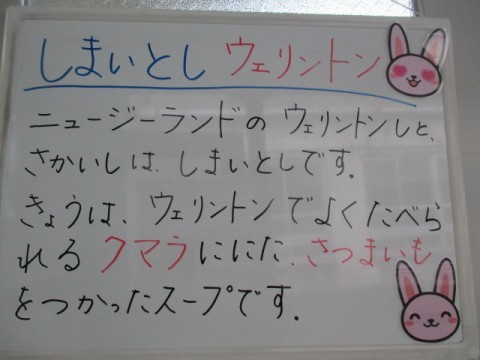 しまいとし ウェリントン
ニュージーランドの ウェリントンしと、
さかいしは、しまいとしです。
きょうは、ウェリントンでよくたべら
れる クマラににた、さつまいも
をつかったスープです。